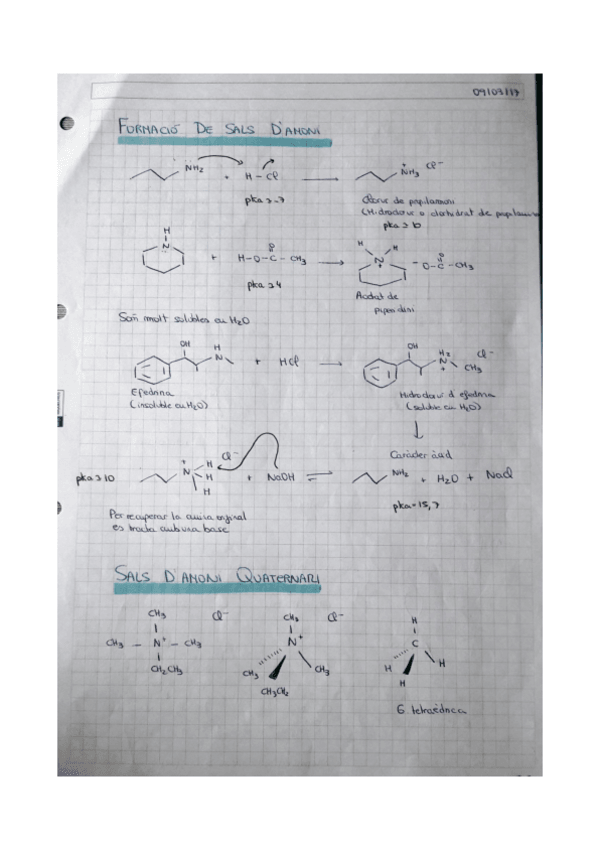 09/03/17
FORMACIÓ DE SALS D'AMONI
NH2 + H-Cl → NH3 Cl-
pka ≥ -7
Clorur de propilamoni
(Hidroclorur o clorhidrat de propilamina
pka ≥ 10
H
N + H-O-C-CH3 → H H N+ -O-C-CH3
O
pka ≥ 4
Acetat de
piperidini
Són molt solubles en H2O
OH H N + HCl → OH H2 N + CH3 Cl-
Efedrina
(insoluble en H2O)
Hidroclorur d'efedrina
(soluble en H2O)
Caràcter àcid
pka ≥ 10
N+ H H H Cl- + NaOH ⇌ NH2 + H2O + NaCl
pka = 15,7
Per recuperar la amina original
es tracta amb una base
SALS D'AMONI QUATERNARI
CH3 Cl-
CH3 - N+ - CH3
CH2CH3
CH3 Cl-
N+
CH3 CH3
CH3CH2
H
C
H H
H
G tetraèdrica